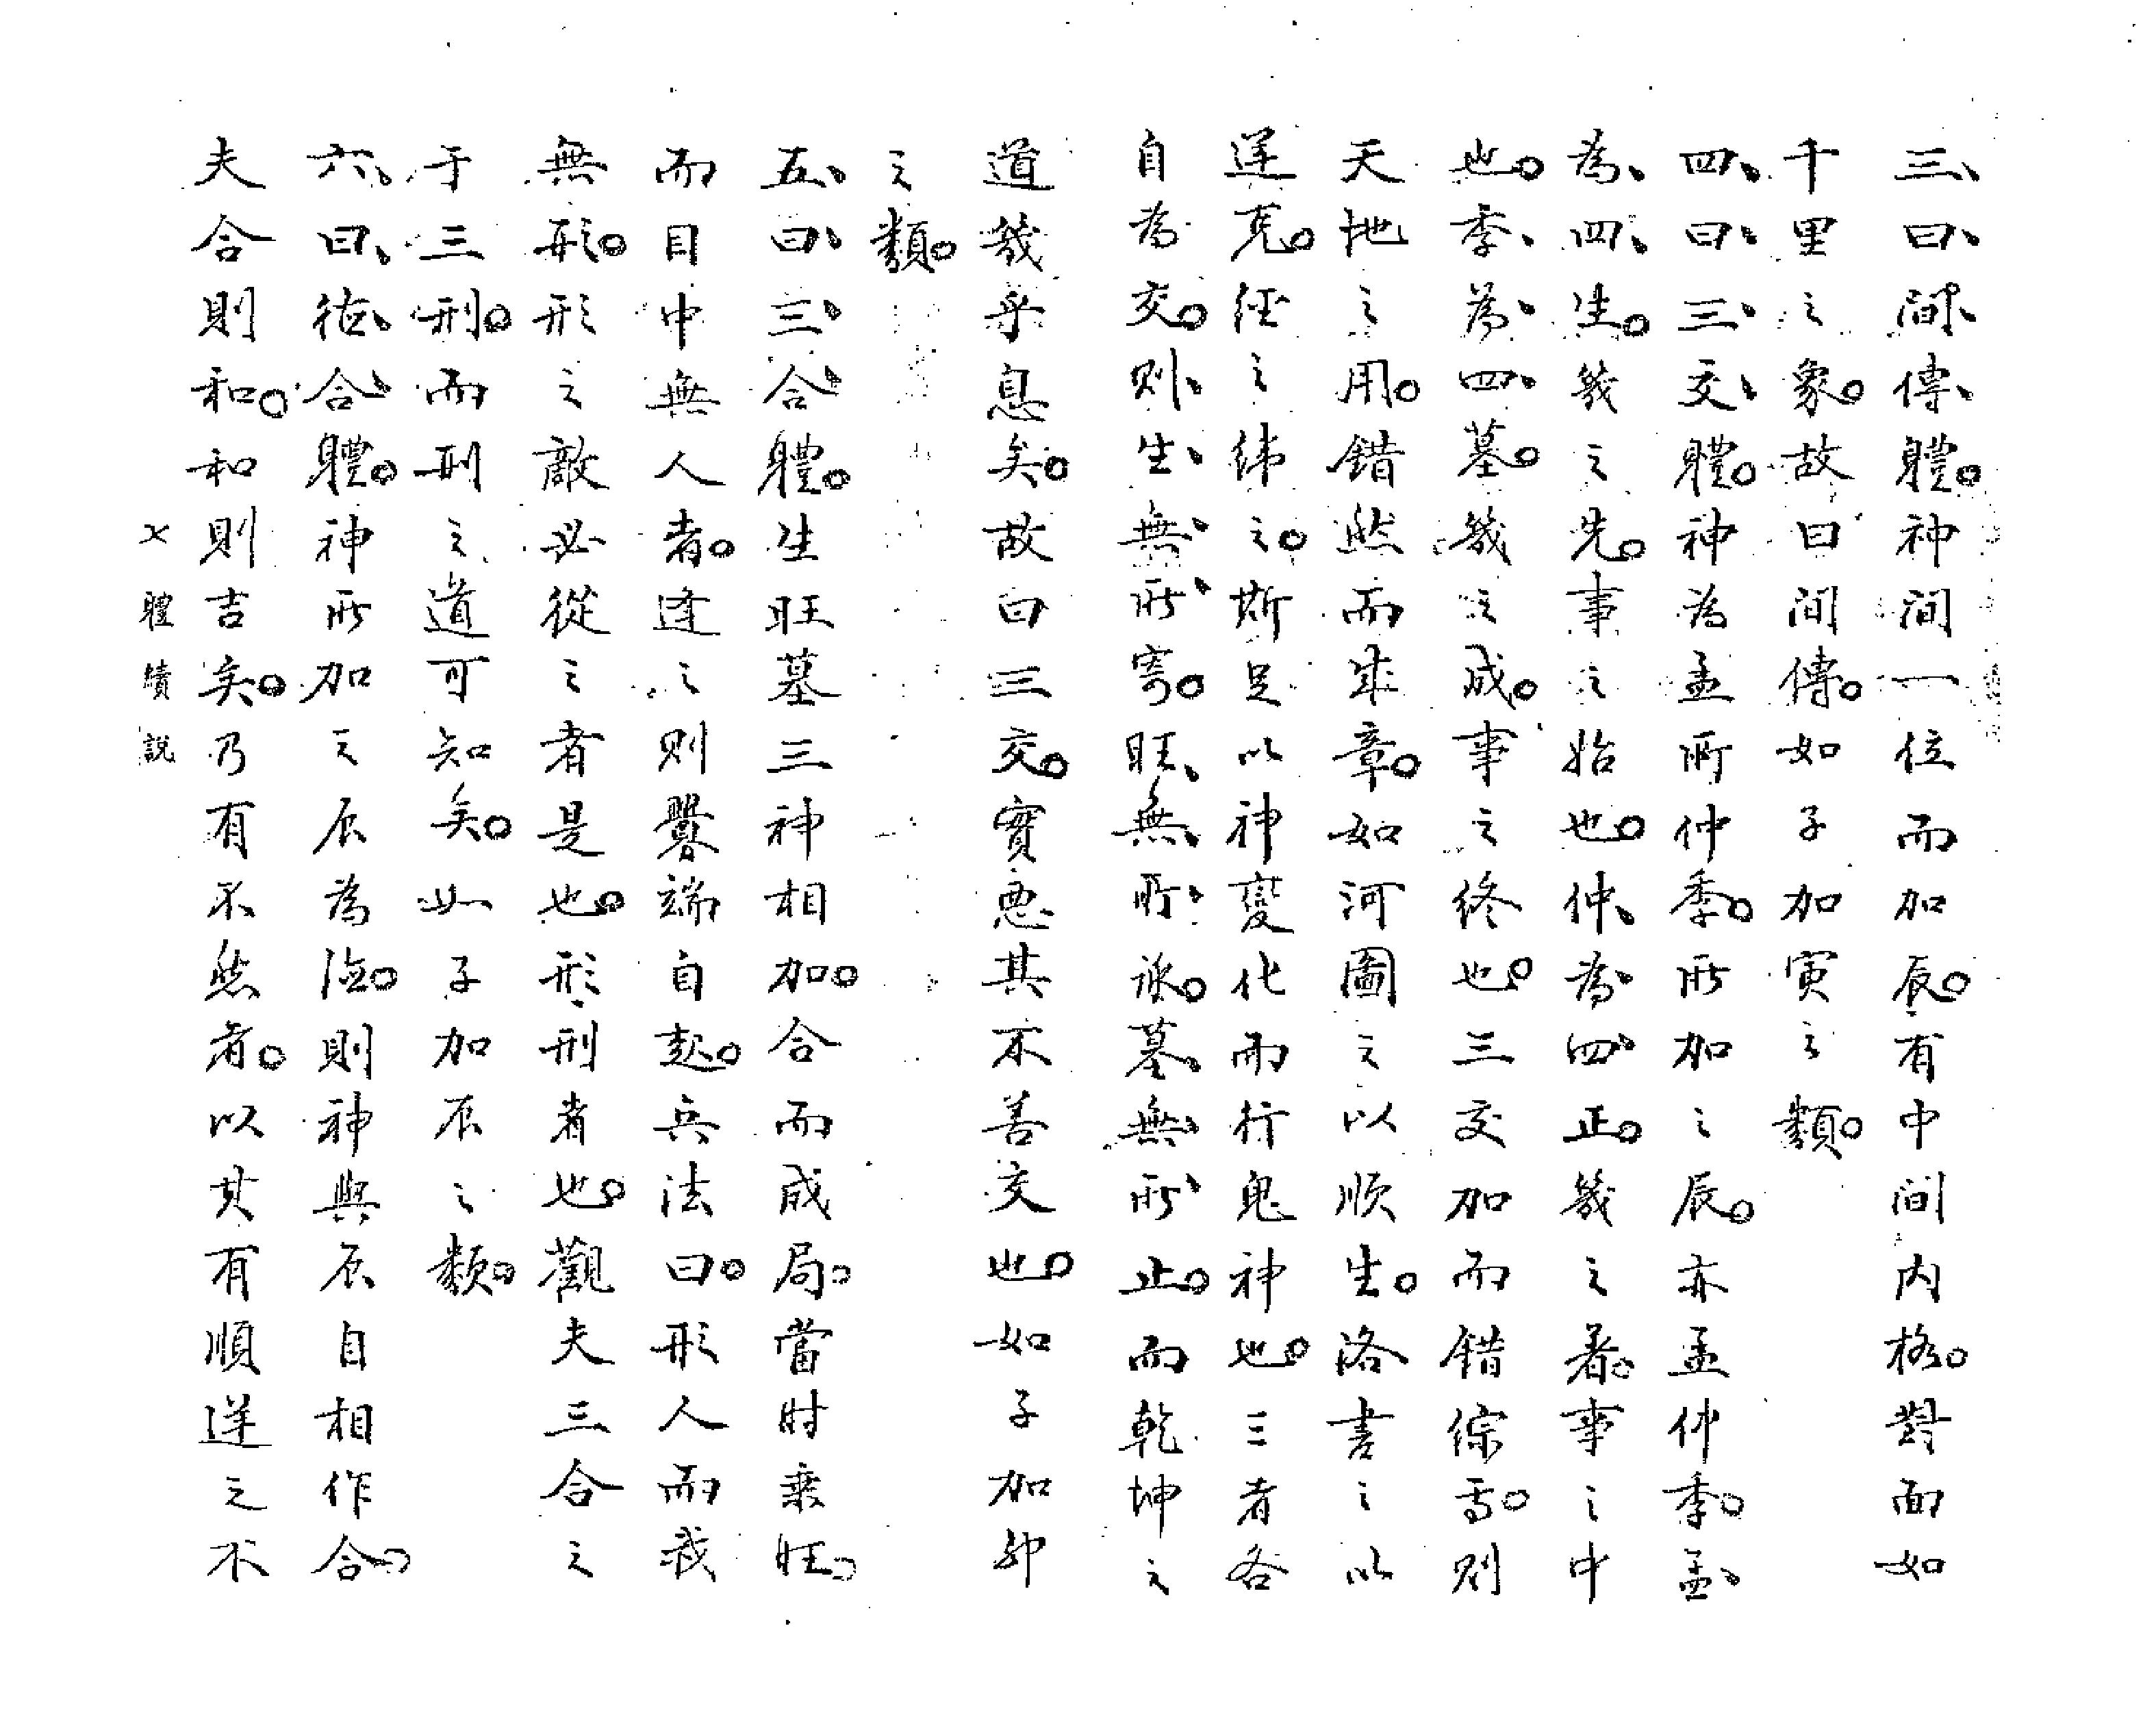 三曰間傳體。神間一位而加辰。有中間内格。對面如
千里之象。故曰間傳。如子加寅之類。
四曰三交體。神為孟所仲季。所加之辰。亦孟仲季。孟
為四生。幾之先。事之始也。仲為四正。幾之著。事之中
也。季為四墓。幾之成。事之終也。三交加而錯綜焉。則
天地之用。錯然而成章。如河圖之以順生。洛書之以
逆克。經之緯之。斯足以神變化而行鬼神也。三者各
自為交。則生無所寄。旺無所承。墓無所止。而乾坤之
道幾乎息矣。故曰三交。實惡其不善交也。如子加卯
之類。
五曰三合體。生旺墓三神相加。合而成局。當时乘旺。
而目中無人者。逢之則釁端自起。兵法曰。形人而我
無形。形之敵必從之者是也。形刑者也。觀夫三合之
于三刑。而刑之道可知矣。如子加辰之類。
六曰德合體。神所加之辰為德。則神與辰自相作合。
夫合則和。和則吉矣。乃有不然者。以其有順逆之不
體續説